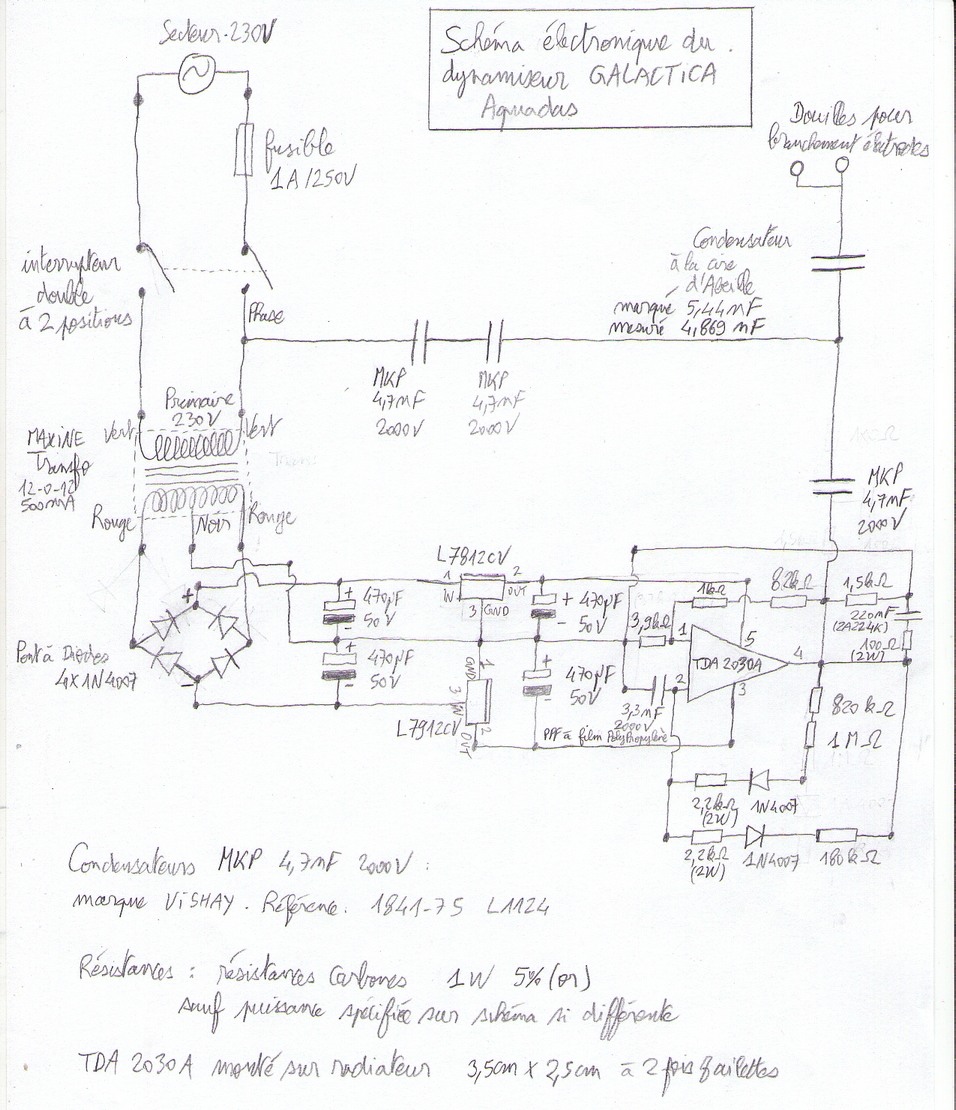 Secteur-230V
Schéma électronique du
dynamiseur GALACTICA
Aquadas
fusible
1A/250V
Douilles pour
branchement électrodes
interrupteur
double
à 2 positions
Phase
Condensateur
à la cire
d'Abeille
marqué 5,44 nF
mesuré 4,869 nF
MKP
4,7nF
2000V
MKP
4,7nF
2000V
Primaire
230V
Vert
Vert
MAXINE
Transfo
12-0-12
500mA
Rouge
Noir
Rouge
MKP
4,7nF
2000V
L7812CV
1
IN
2
OUT
3
GND
+
470µF
50V
-
+
470µF
50V
-
+
470µF
50V
-
+
470µF
50V
-
Pont à Diodes
4X1N4007
+
-
L7912CV
1
GND
3
IN
2
OUT
1kΩ
82kΩ
1,5kΩ
220nF
(2A224K)
100Ω
(2W)
3,9kΩ
1
2
TDA 2030A
5
4
3
3,3nF
2000V
PPF à film PolyPropylène
820kΩ
1MΩ
2,2kΩ
(2W)
1N4007
2,2kΩ
(2W)
1N4007
180kΩ
Condensateurs MKP 4,7nF 2000V :
marque ViSHAY. Référence. 1841-75 L1124
Résistances : résistances Carbones 1W 5% (or)
sauf puissance spécifiée sur schéma si différente
TDA 2030A monté sur radiateur 3,5cm X 2,5cm à 2 fois